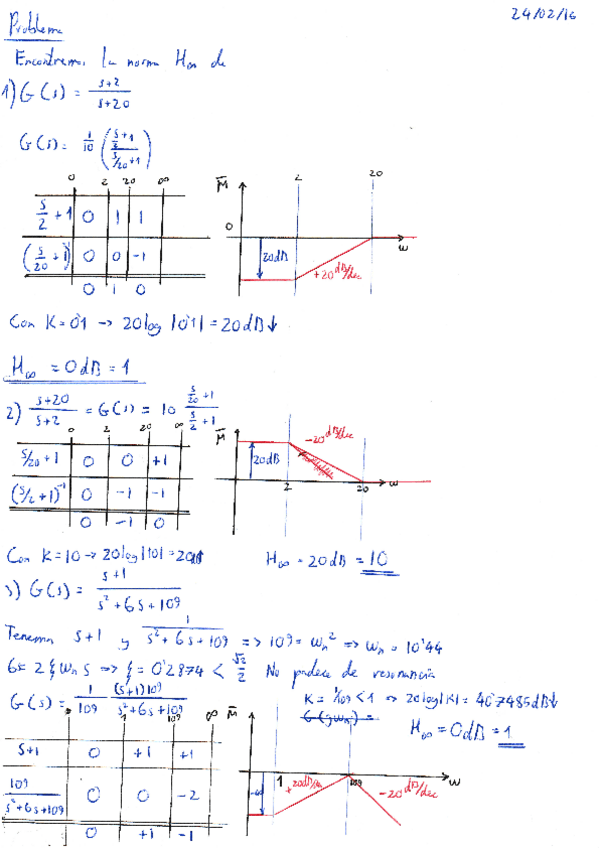 24/02/16
Problema
Encontremos la norma H∞ de
1) G(s) = (s+2)/(s+20)
G(s) = 1/10 ((s/2+1)/(s/20+1))
0 2 20 ∞
s/2+1 0 1 1
(s/20+1)⁻¹ 0 0 -1
0 1 0
M 2 20
0
20dB
+20 dB/dec
w
Con K=0'1 → 20log|0'1| = 20dB↓
H∞ = 0dB = 1
2) (s+20)/(s+2) = G(s) = 10 (s/20+1)/(s/2+1)
0 2 20 ∞
s/20+1 0 0 +1
(s/2+1)⁻¹ 0 -1 -1
0 -1 0
M
-20 dB/dec
20dB
2 20 w
Con K=10 → 20log|10| = 20dB
H∞ = 20dB = 10
3) G(s) = (s+1)/(s²+6s+109)
Tenemos s+1 y 1/(s²+6s+109) => 109 = wn² => wn = 10'44
6s = 2ξwn s => ξ = 0'2874 < √2/2 No padece de resonancia
G(s) = 1/109 (s+1)109/(s²+6s+109)
K = 1/109 < 1 => 20log|K| = 40'7485dB↓
H∞ = 0dB = 1
0 1 109 ∞
s+1 0 +1 +1
109/(s²+6s+109) 0 0 -2
0 +1 -1
M
1 109 w
+20 dB/dec
-20 dB/dec